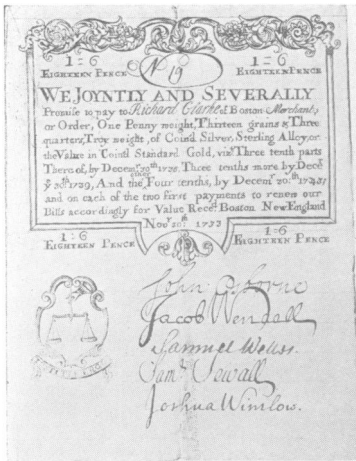 1=6 1=6
EIGHTEEN PENCE No 19 EIGHTEEN PENCE
WE JOYNTLY AND SEVERALLY
Promise to pay to Richard Clarke of Boston Merchant,
or Order, One Penny weight, Thirteen grains & Three
quarters, Troy weight, of Coin'd Silver, Sterling Alloy, or
the Value in Coin'd Standard Gold, viz.t Three tenth parts
Thereof, by Decem.r 30th Three tenths more by Dec.r
ye 30th 1739, And the Four tenths, by Decem.r 30th 1743;
and on each of the two first payments to renew our
Bills accordingly for Value Rec.d Boston New England
Nov.r 30th 1733
1=6 1=6
EIGHTEEN PENCE EIGHTEEN PENCE
John Osborne
Jacob Wendell
Samuel Welles.
Sam.l Sewall
Joshua Winslow.